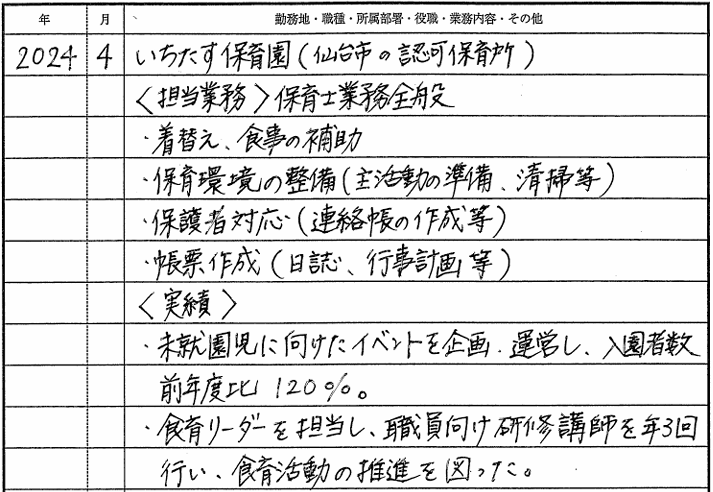 年 月 勤務地・職種・所属部署・役職・業務内容・その他
2024 4 いちたす保育園(仙台市の認可保育所)
〈担当業務〉保育士業務全般
・着替え、食事の補助
・保育環境の整備(主活動の準備、清掃等)
・保護者対応(連絡帳の作成等)
・帳票作成(日誌、行事計画等)
〈実績〉
・未就園児に向けたイベントを企画・運営し、入園者数
前年度比120%。
・食育リーダーを担当し、職員向け研修講師を年3回
行い、食育活動の推進を図った。